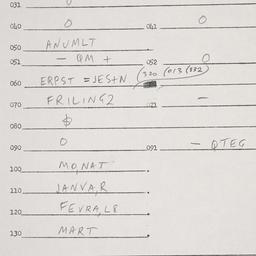 031
040 0 041 0
050 ANUMLT
051 - QM + 052 0
060 ERPST = JESTN (320 (013 (332)
070 FRILING2 071 -
080 $
090 0 091 - QTEG
100 MO,NAT .
110 JANVA,R .
120 FEVRA,L8 .
130 MART .